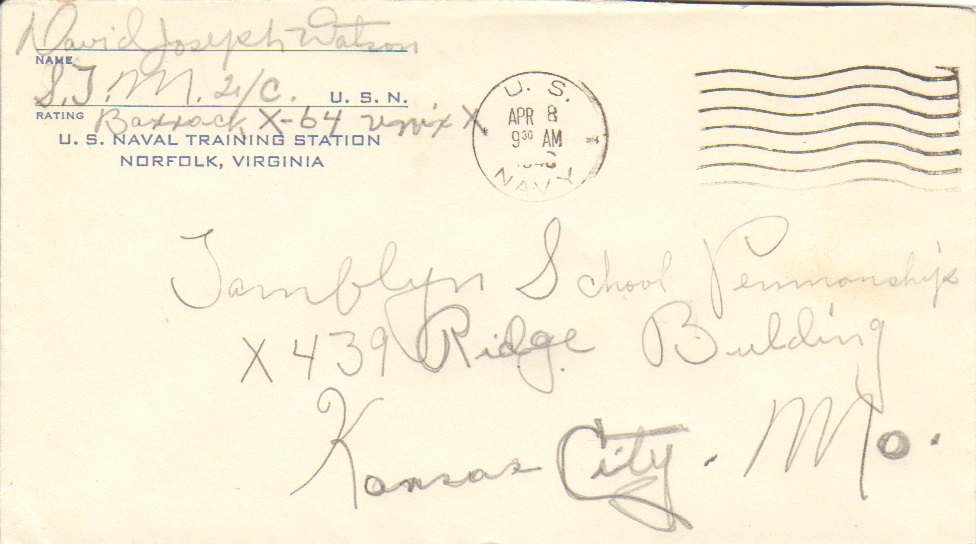 David Joseph Watson
NAME
S.T.M. 2/C. U. S. N.
RATING Barrack X-64 Unix X
U. S. NAVAL TRAINING STATION
NORFOLK, VIRGINIA
U. S.
APR 8
9 30 AM
NAVY
Tamblyn School Penmonship
X 439 Ridge Building
Kansas City. Mo.